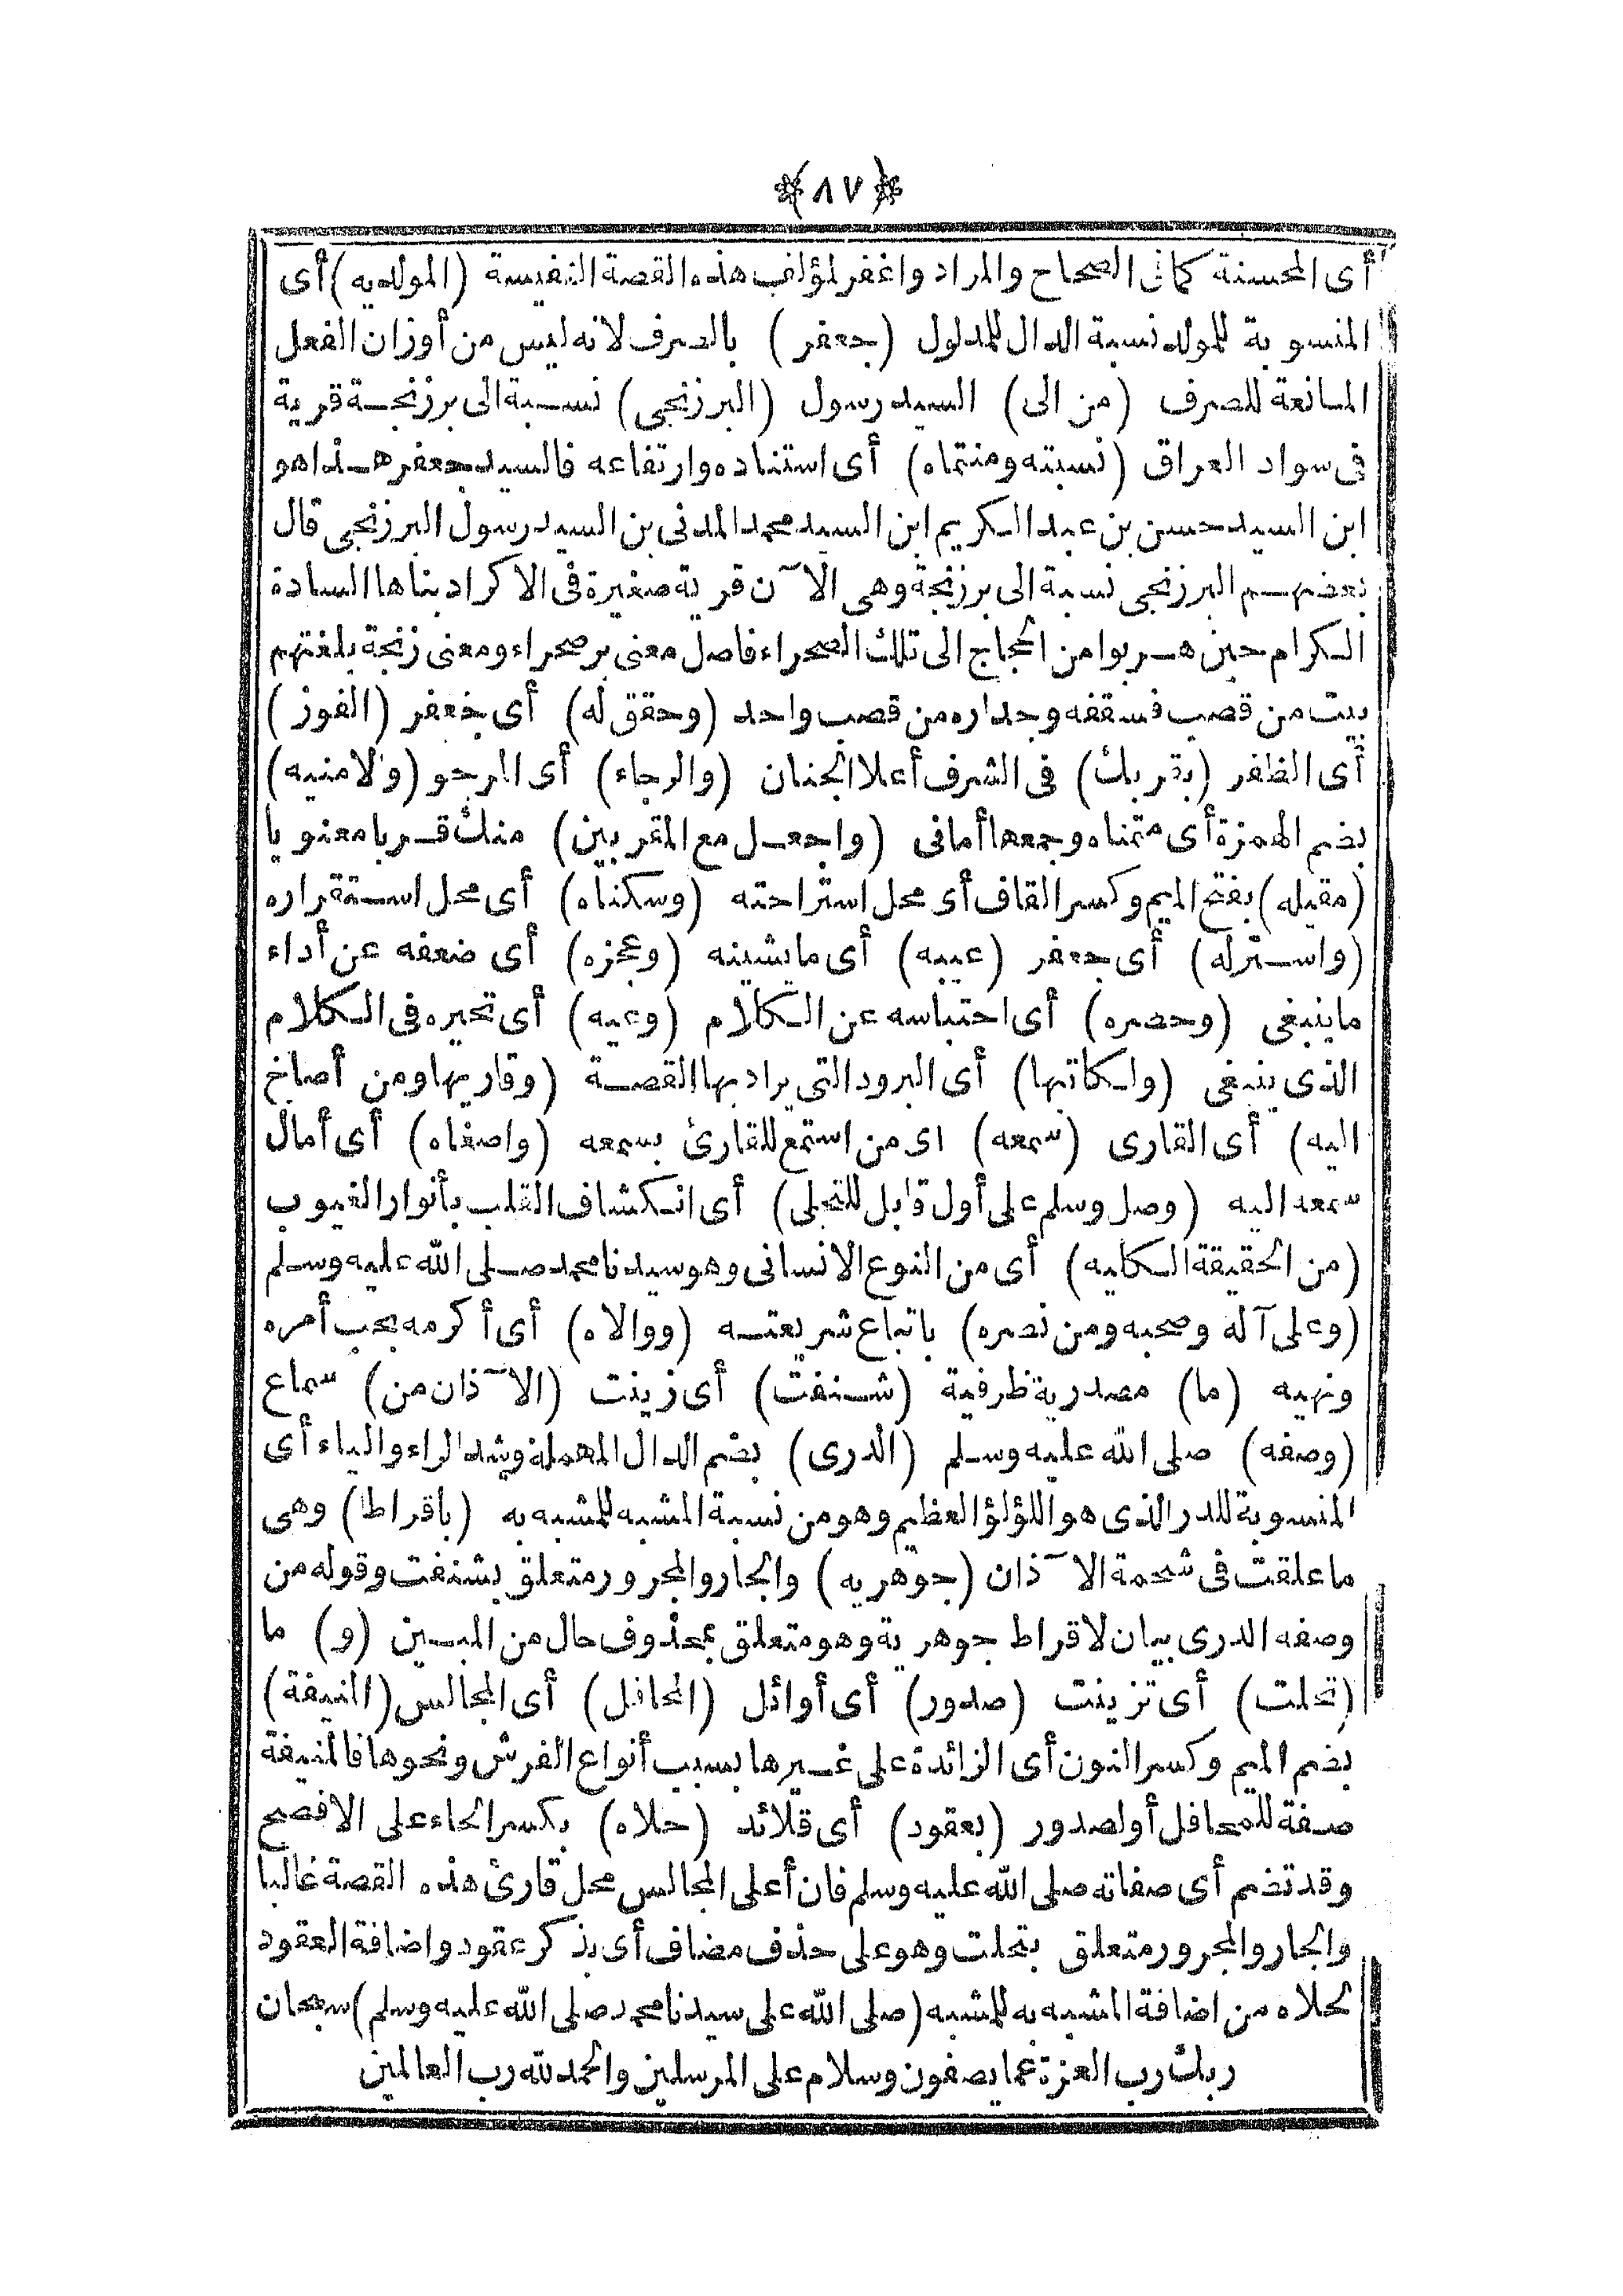 ﴿٨٧﴾
أى المحسنة كما فى الصحاح والمراد واغفر لمؤلف هذه القصة النفيسة (المولديه) أى
المنسوبة للمولد نسبة الدال للمدلول (جعفر) بالصرف لانه ليس من أوزان الفعل
المانعة للصرف (من الى) السيد رسول (البرزنجى) نسبة الى برزنجة قرية
فى سواد العراق (نسبته ومنتماه) أى استناده وارتفاعه فالسيد جعفر هذا هو
ابن السيد حسن بن عبد الكريم ابن السيد محمد المدنى بن السيد رسول البرزنجى قال
بعضهم البرزنجى نسبة الى برزنجة وهى الآن قرية صغيرة فى الاكراد بناها السادة
الكرام حين هربوا من الحجاج الى تلك الصحراء فاصل معنى بر صحراء ومعنى زنجة بلغتهم
بيت من قصب فسقفه وجداره من قصب واحد (وحقق له) أى جعفر (الفوز)
أى الظفر (بقربك) فى الشرف أعلا الجنان (والرجاء) أى المرجو (والامنيه)
بضم الهمزة أى متمناه وجمعها أمانى (واجعل مع المقربين) منك قربا معنويا
(مقيله) بفتح الميم وكسر القاف أى محل استراحته (وسكناه) أى محل استقراره
(واسترله) أى جعفر (عيبه) أى ما يشينه (وعجزه) أى ضعفه عن أداء
ما ينبغى (وحصره) أى احتباسه عن الكلام (وعيه) أى تحيره فى الكلام
الذى ينبغى (ولكاتبها) أى البرود التى يراد بها القصة (وقاريها ومن أصاخ
اليه) أى القارى (سمعه) اى من استمع للقارئ بسمعه (واصغاه) أى أمال
سمعه اليه (وصل وسلم على أول قابل للتجلى) أى انكشاف القلب بأنوار الغيوب
(من الحقيقة الكليه) أى من النوع الانسانى وهو سيدنا محمد صلى الله عليه وسلم
(وعلى آله وصحبه ومن نصره) باتباع شريعته (ووالاه) أى أكرمه بحب أمره
ونهيه (ما) مصدرية ظرفية (شنفت) أى زينت (الآذان من) سماع
(وصفه) صلى الله عليه وسلم (الدرى) بضم الدال المهملة وشد الراء والياء أى
المنسوبة للدر الذى هو اللؤلؤ العظيم وهو من نسبة المشبه للمشبه به (بأقراط) وهى
ما علقت فى شحمة الآذان (جوهريه) والجار والمجرور متعلق بشنفت وقوله من
وصفه الدرى بيان لاقراط جوهرية وهو متعلق بمحذوف حال من المبين (و) ما
(تحلت) أى تزينت (صدور) أى أوائل (المحافل) أى المجالس (المنيفة)
بضم الميم وكسر النون أى الزائدة على غيرها بسبب أنواع الفرش ونحوها فالمنيفة
صفة للمحافل أو لصدور (بعقود) أى قلائد (حلاه) بكسر الحاء على الافصح
وقد تضم أى صفاته صلى الله عليه وسلم فان أعلى المجالس محل قارئ هذه القصة غالبا
والجار والمجرور متعلق بتحلت وهو على حذف مضاف أى بذكر عقود واضافة العقود
لحلاه من اضافة المشبه به للمشبه (صلى الله على سيدنا محمد صلى الله عليه وسلم) سبحان
ربك رب العزة عما يصفون وسلام على المرسلين والحمد لله رب العالمين